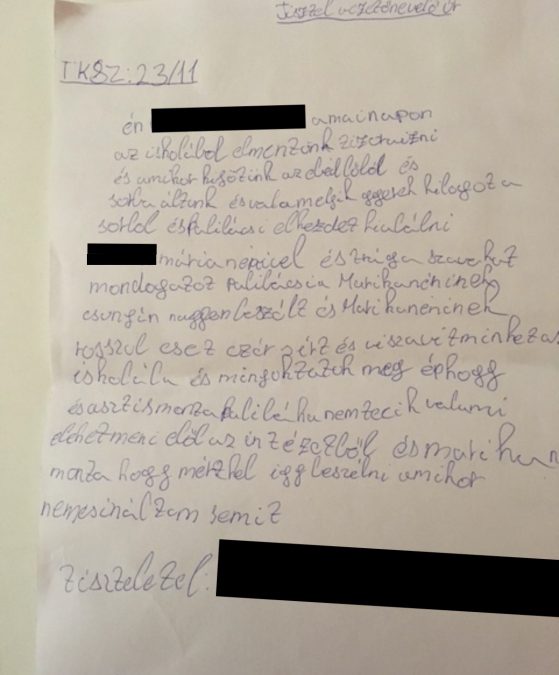 Tiszzel vezetőnevelő úr
TKSZ:23/11
én amainapon
az iskolából elmentünk zizetvizni
és amikor az ebédlőtől és
sorba áltunk ésvalamelyik gyerek kilogot a
sorból éspalilácsi elkezdet kiabálni
márianénivel és szavakat
mondogatot palilácsia Marikanéninek
csungin naggyonleszólt és Marikanéninek
rosszul eset ezér sírt és viszavitminketas
iskolába és mingoktatok meg éphogy
ésasztismonta palilá hanemtecik valami
elehetmeni elől az intézetből ésmarikan
monta hogy mérkel így leszélni amikor
nemcsináltam semit
tisztelet el: